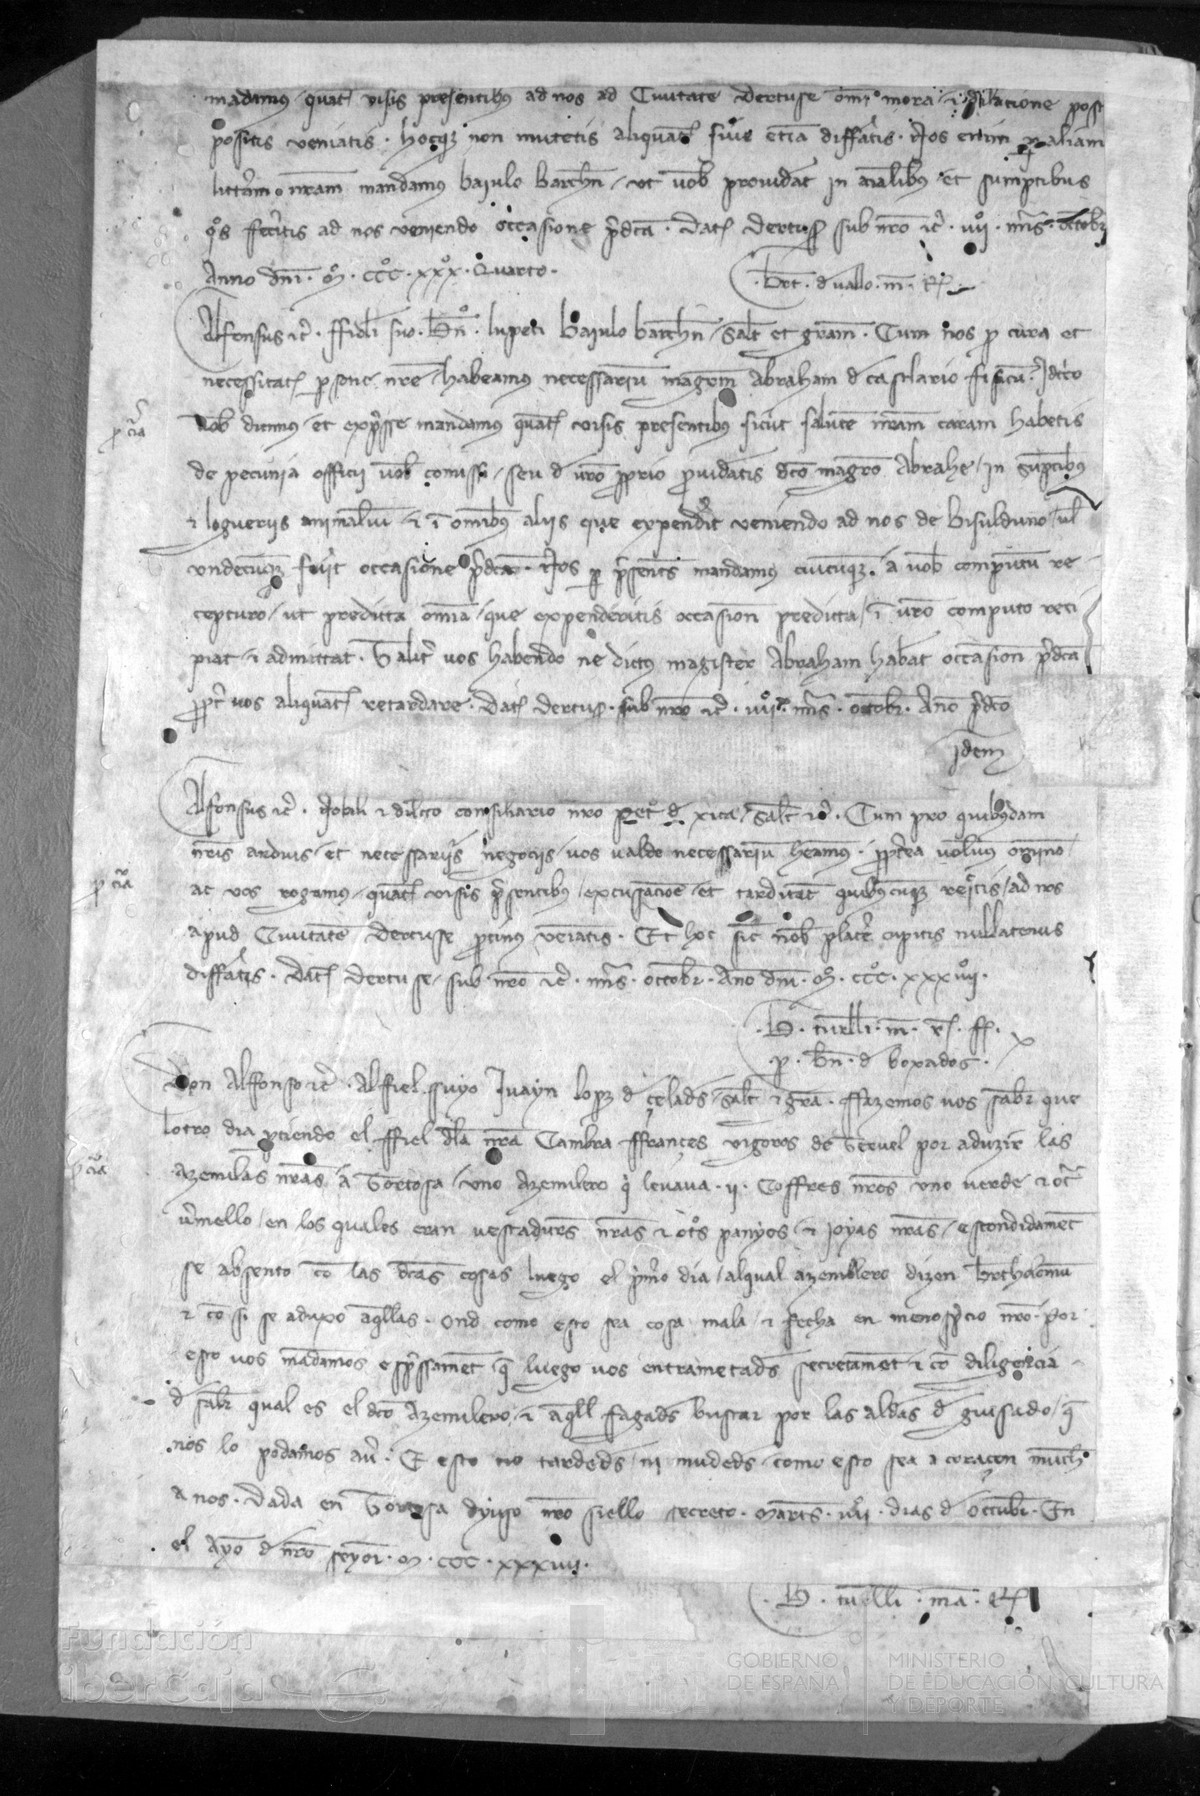 madamus quat visis presentibus ad nos ad Civitate Dertuse omi mora et dilacione post
positis veniatis. hocque non mutetis aliquat sive etia differatis. Nos enim per aliam
litteram nram mandamus baiulo Barchn ut vob provideat in aialibus et sumptibus
quos feceritis ad nos veniendo occasione predca. Dat Dertuse sub nro etc. mens. Octobr
Anno dni. Mº. CCCº. xxxº. Quarto.
Alfonsus etc. ffideli suo. Bn. lupeti Baiulo barchn Salt et gram. Cum nos p cura et
necessitat psone nre habeamus necessarium magrm Abraham d castlario fisicu. Idcirco
vob dicimus et expsse mandamus quat visis presentibus sicut salute nram caram habetis
de pecunia officii vob comissi seu d vro pprio pvideatis dco magro Abrahe in sumptibus
et logueriis animaliu et i omibus aliis que expendit veniendo ad nos de Bisulduno vl
undecumque fuit occasione pdca. Nos p psentes mandamus cuicumque a vob computum re
cepturo ut predicta omia que expenderitis occasion predicta i vro computo reci
piat et admittat. Taliter vos habendo ne dictus magister Abraham habeat occasion pdca
ppt vos aliquat retardare. Dat Dertuse sub nro etc. mens. octobr. Ano pdco
Idem
Alfonsus etc. Nobili et dilcto consiliario nro Peto d xica Salt etc. Cum pro quibusdam
nris arduis et necessariis negociis vos valde necessarium heamus. ppterea volumus
ac vos rogamus quat visis psentibus excusacioe et tarditate quibuscumque reiectis ad nos
apud Civitate Dertuse ptinus veniatis. Et hoc sic nob placere cupitis nullatenus
differatis. Dat Dertuse sub nro etc. mens. octobr. Ano dni. Mº. CCCº. xxxiiij.
p. Bn. d boxados.
Don Alfonso etc. Al fiel suyo Juayn lopez d celads Salt et gra. ffazemos vos saber que
lotro dia ptiendo el ffiel dla nra Cambra ffrances vigoros de Teruel por aduzir las
azemilas nras a Tortosa uno azemilero q levava .ii. Coffres nros uno verde et otr
vmello en los quales eran vestadures nras et otros panyos et joyas nras escondidament
se absento co las dcas cosas luego el pmo dia al qual azemilero dizen Brtholomeu
et co si se aduxo aqllas. Ond como esto sea cosa mala et fecha en menospcio nro. Por
esto vos madamos espssament q luego vos entrametads secretament et co diligencia
d saber qual es el dco Azemilero et aqll fagads buscar por las aldeas d guisado q
nos lo podamos aver. E esto no tardeds ni mudeds como esto sea a coraçon mucho
a nos. Dada en Tortosa dyuso nro siello secreto. Martes. dias d Octubr. En
el Ayo d nro seyor. M. CCC. xxxiiij.
Fundación
iberCaja
GOBIERNO
DE ESPAÑA
MINISTERIO
DE EDUCACIÓN, CULTURA
Y DEPORTE